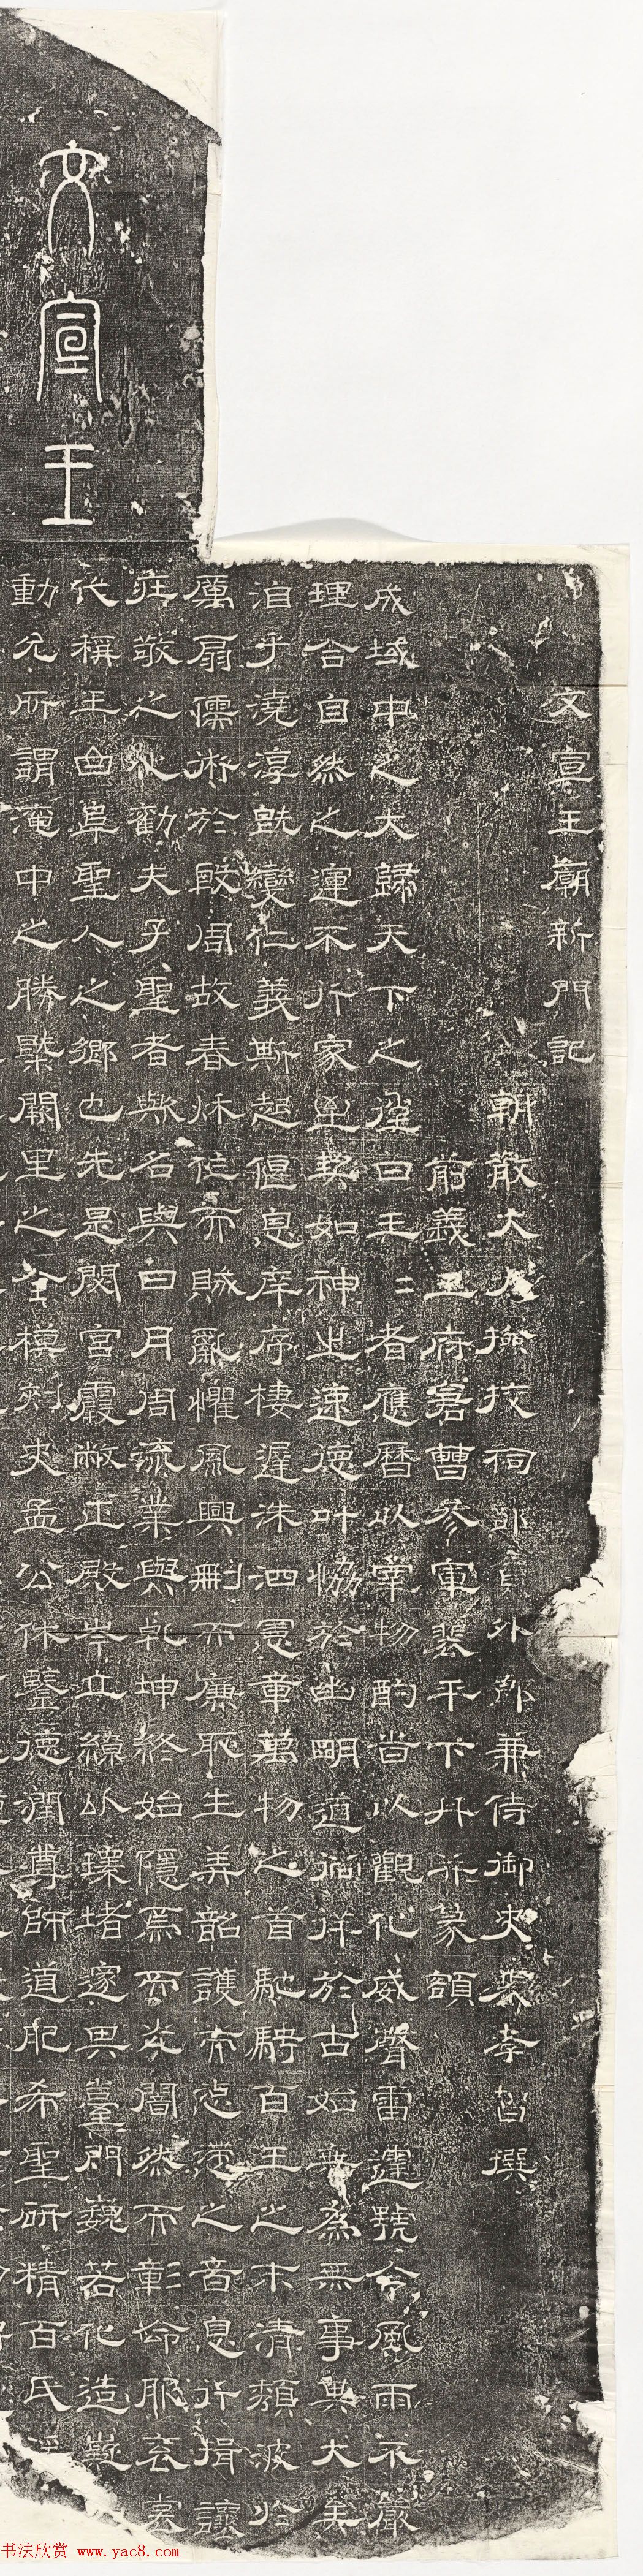 文宣王
文宣王廟新門記
朝散大夫檢校祠部員外郎兼侍御史裴孝智撰
前義王府倉曹參軍裴平下丹并篆額
成域中之大歸天下之往曰王王者應曆以宰物酌尚以觀化威聲雷運號令風雨不嚴
理合自然之運不行家至契如神之速德叶恊於幽明道徜徉於古始無為無事興大美
洎乎澆淳旣變仁義斯起偃息庠序棲遲洙泗憲章萬物之首馳騁百王之末清頽波於
厲扇儒術於殷周故春秋作而賊亂懼風興刪而廉恥生弄韶護而忘滯之音息行揖讓
莊敬之化勸夫子聖者歟名與日月周流業與乾坤終始隱焉而光闇然而彰命服衮冕
代稱王曲阜聖人之鄉也先是閟宮霞敞正殿岑立繚以環堵邃其臺門巍若化造嶷
動允所謂淹中之勝槩闕里之全模刺史孟公休鑒德潤尊師道肥希聖研精百氏
书法欣赏 www.yac8.com